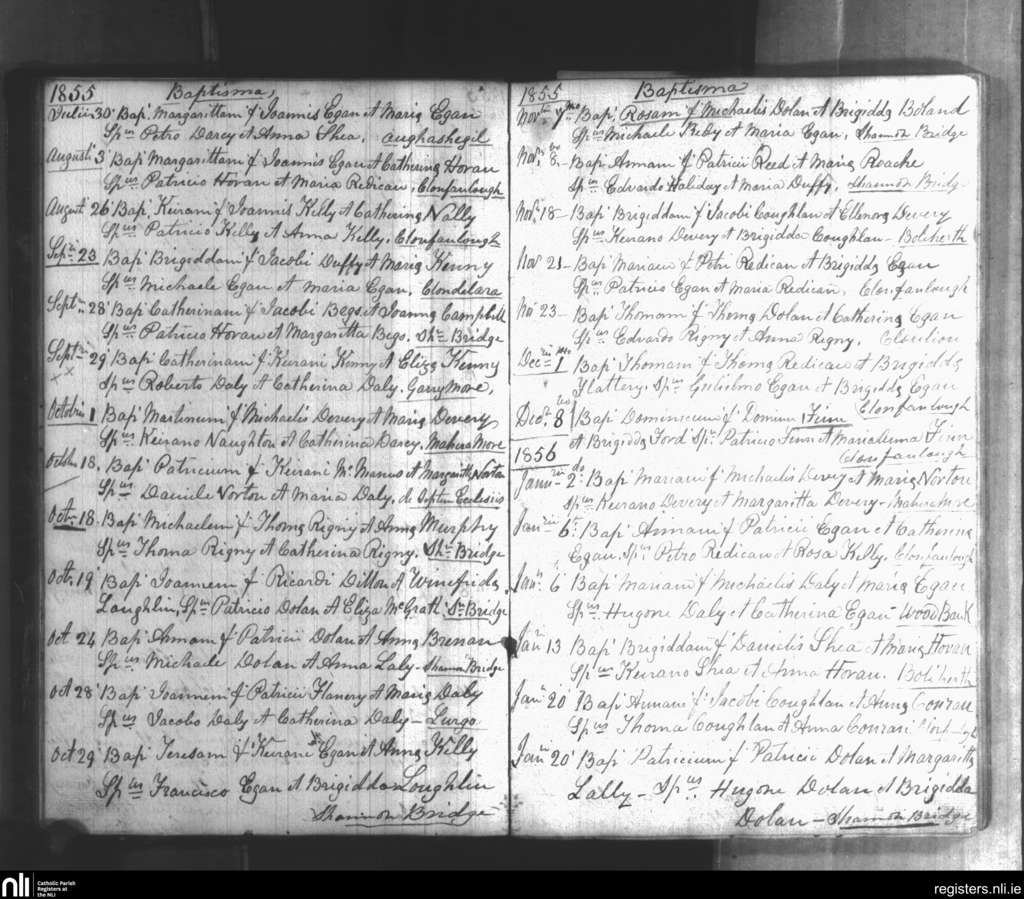 1855 Baptisma,
Julii 30 Bap. Margarittam f Joannis Egan et Maria Egan
Spus Petro Darcy et Anna Shea, aughashegil
Augusti 3 Bap Margarittam f Joannis Egan et Catherina Horan
Spus Patricio Horan et Maria Redican, Clonfanlough
August 26 Bap. Keiram f Joannis Kelly et Catherina Nally
Spus Patricio Kelly et Anna Kelly, Clonfanlough
Sepr 23 Bap Brigiddam f Jacobi Duffy et Maria Kenny
Spus Michaele Egan et maria Egan, Clondelara
Septr 28 Bap Catherinam f Jacobi Begs et Joanna Campbell
Spus Patricio Horan et Margaritta Bego. Shn Bridge
Septr 29 Bap Catherinam f Keirani Kenny et Eliza Kenny
x x Spus Roberto Daly et Catherina Daly. Garrymore,
Octobris 1 Bap Martinum f Michaelis Devery et Maria Devery
Spus Keirano Naughton et Catherina Darcy. Mahera More
Octobr 18. Bap Patricium f Keirani Mc Manus et Margaritta Norton
Spus Daniele Norton et Maria Daly, de Septem Ecclesiis
Oct. 18. Bap Michaelem f Thoma Rigny et Anna Murphy
Spus Thoma Rigny et Catherina Rigny. Shn Bridge
Oct. 19 Bap Joannem f Ricardi Dillon et Winefrida
Loughlin, Spus Patricio Dolan et Eliza McGrath Sn Bridge
Oct 24 Bap Annam f Patricii Dolan et Anna Brenan
Spus Michaele Dolan et Anna Laly - Shannon Bridge
Oct 28 Bap Joannem f Patricii Flanery et Maria Daly
Spus Jacobo Daly et Catherina Daly - Lurgo
Oct 29 Bap Teresam f Keirani Egan et Anna Kelly
Spus Francisco Egan et Brigidda Loughlin
Shannon Bridge
1855 Baptisma
Novr 7mo Bap, Rosam f Michaelis Dolan et Brigidda Boland
Spus Michaele Reby et Maria Egan, Shannon Bridge
Nov. 8vo Bap Annam f Patricii Reed et Maria Roache
Spus Edvardo Haliday et Maria Duffy, Shannon Bridge
Nov. 18 - Bap Brigiddam f Jacobi Coughlan et Ellenora Devery
Spus Keirano Devery et Brigidda Coughlan - Bolherth
Nov 21 - Bap Mariam f Petri Redican et Brigidda Egan
Spus Patricio Egan et Maria Redican, Clonfanlough
Nov 23 - Bap Thomam f Thoma Dolan et Catherina Egan
Spus Edvardo Rigny et Anna Rigny,
Decris 1mo Bap Thomam f Thoma Redican et Brigidda
Flattery, Spus Gulielmo Egan et Brigidda Egan
Clonfanlough
Decr 8vo Bap Dominicum f Domini Finn
et Brigidda Ford Spus Patricio Finn et Maria Anna Finn
1856 Clonfanlough
Janu 2do Bap Mariam f Michaelis Devery et Maria Norton
Spus Keirano Devery et Margaritta Devery - Mahera More
Janrii 6 Bap Annam f Patricii Egan et Catherina
Egan, Spus Petro Redican et Rosa Kelly, Clonfanlough
Janr 6 Bap Mariam f Michaelis Daly et Maria Egan
Spus Hugone Daly et Catherina Egan - Wood Bank
Janr 13 Bap Brigiddam f Danielis Shea et Maria Horan
Spus Keirano Shea et Anna Horan. Boliherth
Janr 20 Bap Annam f Jacobi Coughlan et Anna Conran
Spus Thoma Coughlan et Anna Conran
Janr 20 Bap Patricium f Patricii Dolan et Margaritta
Lally - Spus Hugone Dolan et Brigidda
Dolan - Shannon Bridge
nli Catholic Parish
Registers at
the NLI
registers.nli.ie